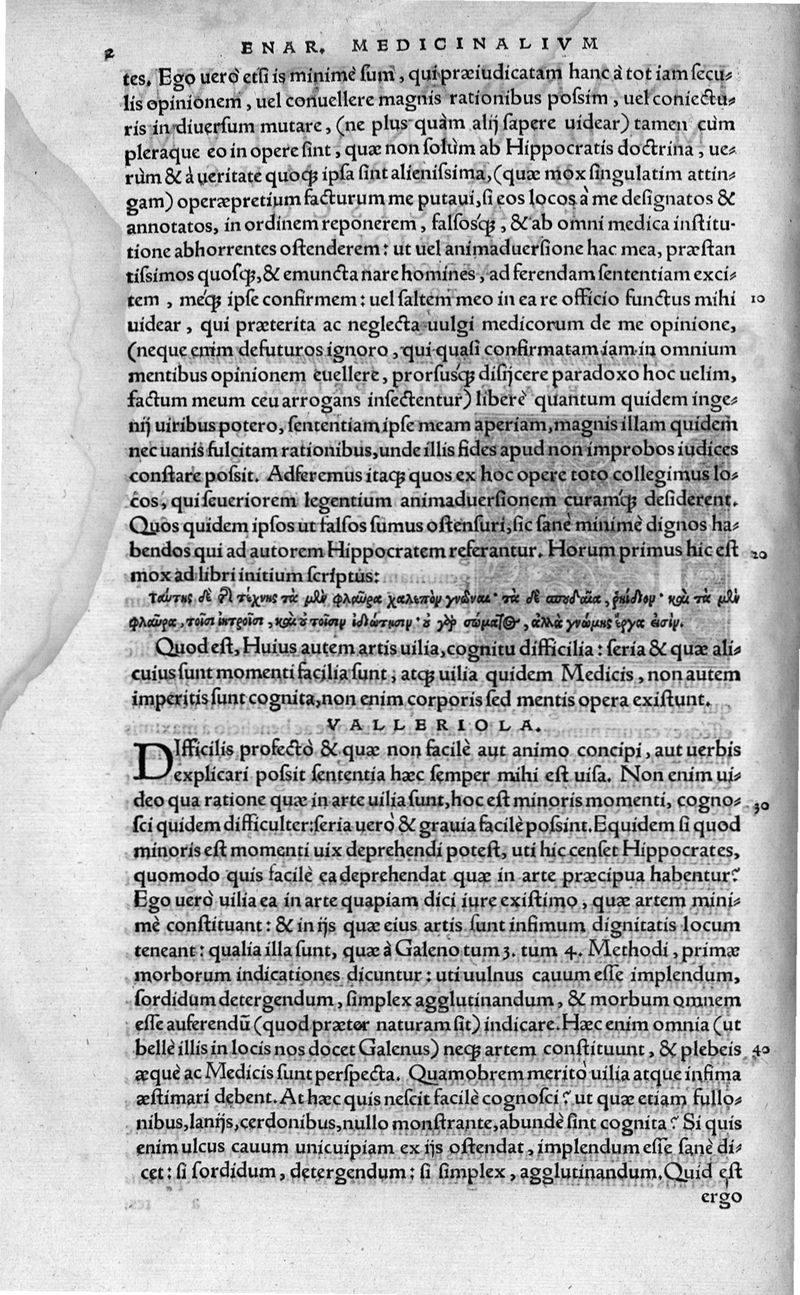 2 ENAR. MEDICINALIVM
tes. Ego uerò etsi is minimè sum, qui præiudicatam hanc à tot iam secu-
lis opinionem, uel conuellere magnis rationibus possim, uel coniectu-
ris in diuersum mutare, (ne plus quàm alij sapere uidear) tamen cùm
pleraque eo in opere sint, quæ non solùm ab Hippocratis doctrina, ue-
rùm & à ueritate quoq; ipsa sint alienissima, (quæ mox singulatim attin-
gam) operæpretium facturum me putaui, si eos locos à me designatos &
annotatos, in ordinem reponerem, falsosq́;, & ab omni medica institu-
tione abhorrentes ostenderem: ut uel animaduersione hac mea, præstan
tissimos quosq;, & emunctanare homines, ad ferendam sententiam exci-
tem, meq́; ipse confirmem: uel saltem meo in ea re officio functus mihi 10
uidear, qui præterita ac neglecta uulgi medicorum de me opinione,
(neque enim defuturos ignoro, qui quasi confirmatam iam in omnium
mentibus opinionem euellere, prorsusq́; disijcere paradoxo hoc uelim,
factum meum ceu arrogans insectentur) liberè quantum quidem inge-
nij uiribus potero, sententiam ipse meam aperiam, magnis illam quidem
nec uanis fulcitam rationibus, unde illis fides apud non improbos iudices
constare possit. Adferemus itaq; quos ex hoc opere toto collegimus lo-
cos, qui seueriorem legentium animaduersionem curamq́; desiderent.
Quos quidem ipsos ut falsos sumus ostensuri, sic sanè minimè dignos ha-
bendos qui ad autorem Hippocratem referantur. Horum primus hic est 20
mox ad libri initium scriptus:
ταύτης δὲ τῆς τέχνης τὰ μὲν φλαῦρα χαλεπὸν γνῶναι· τὰ δὲ σπουδαῖα, ῥηίδιον· καὶ τὰ μὲν
φλαῦρα, τοῖσι ἰητροῖσι, καὶ ὀ τοῖσιν ἰδιώτῃσιν· ὀ γὰρ σώματος, ἀλλὰ γνώμης ἔργα εἰσίν.
Quod est, Huius autem artis uilia, cognitu difficilia: seria & quæ ali-
cuius sunt momenti facilia sunt; atq; uilia quidem Medicis, non autem
imperitis sunt cognita, non enim corporis sed mentis opera existunt.
VALLERIOLA.
DIfficilis profectò & quæ non facilè aut animo concipi, aut uerbis
explicari possit sententia hæc semper mihi est uisa. Non enim ui-
deo qua ratione quæ in arte uilia sunt, hoc est minoris momenti, cogno- 30
sci quidem difficulter: seria uerò & grauia facilè possint. Equidem si quod
minoris est momenti uix deprehendi potest, uti hic censet Hippocrates,
quomodo quis facilè ea deprehendat quæ in arte præcipua habentur?
Ego uerò uilia ea in arte quapiam dici iure existimo, quæ artem mini-
mè constituant: & in ijs quæ eius artis sunt infimum dignitatis locum
teneant: qualia illa sunt, quæ à Galeno tum 3. tum 4. Methodi, primæ
morborum indicationes dicuntur: uti uulnus cauum esse implendum,
sordidum detergendum, simplex agglutinandum, & morbum omnem
esse auferendū (quod præter naturam sit) indicare. Hæc enim omnia (ut
bellè illis in locis nos docet Galenus) neq; artem constituunt, & plebeis 40
æquè ac Medicis sunt perspecta. Quamobrem meritò uilia atque infima
æstimari debent. At hæc quis nescit facilè cognosci? ut quæ etiam fullo-
nibus, lanijs, cerdonibus, nullo monstrante, abundè sint cognita? Si quis
enim ulcus cauum unicuipiam ex ijs ostendat, implendum esse sanè di-
cet: si sordidum, detergendum: si simplex, agglutinandum. Quid est
ergo